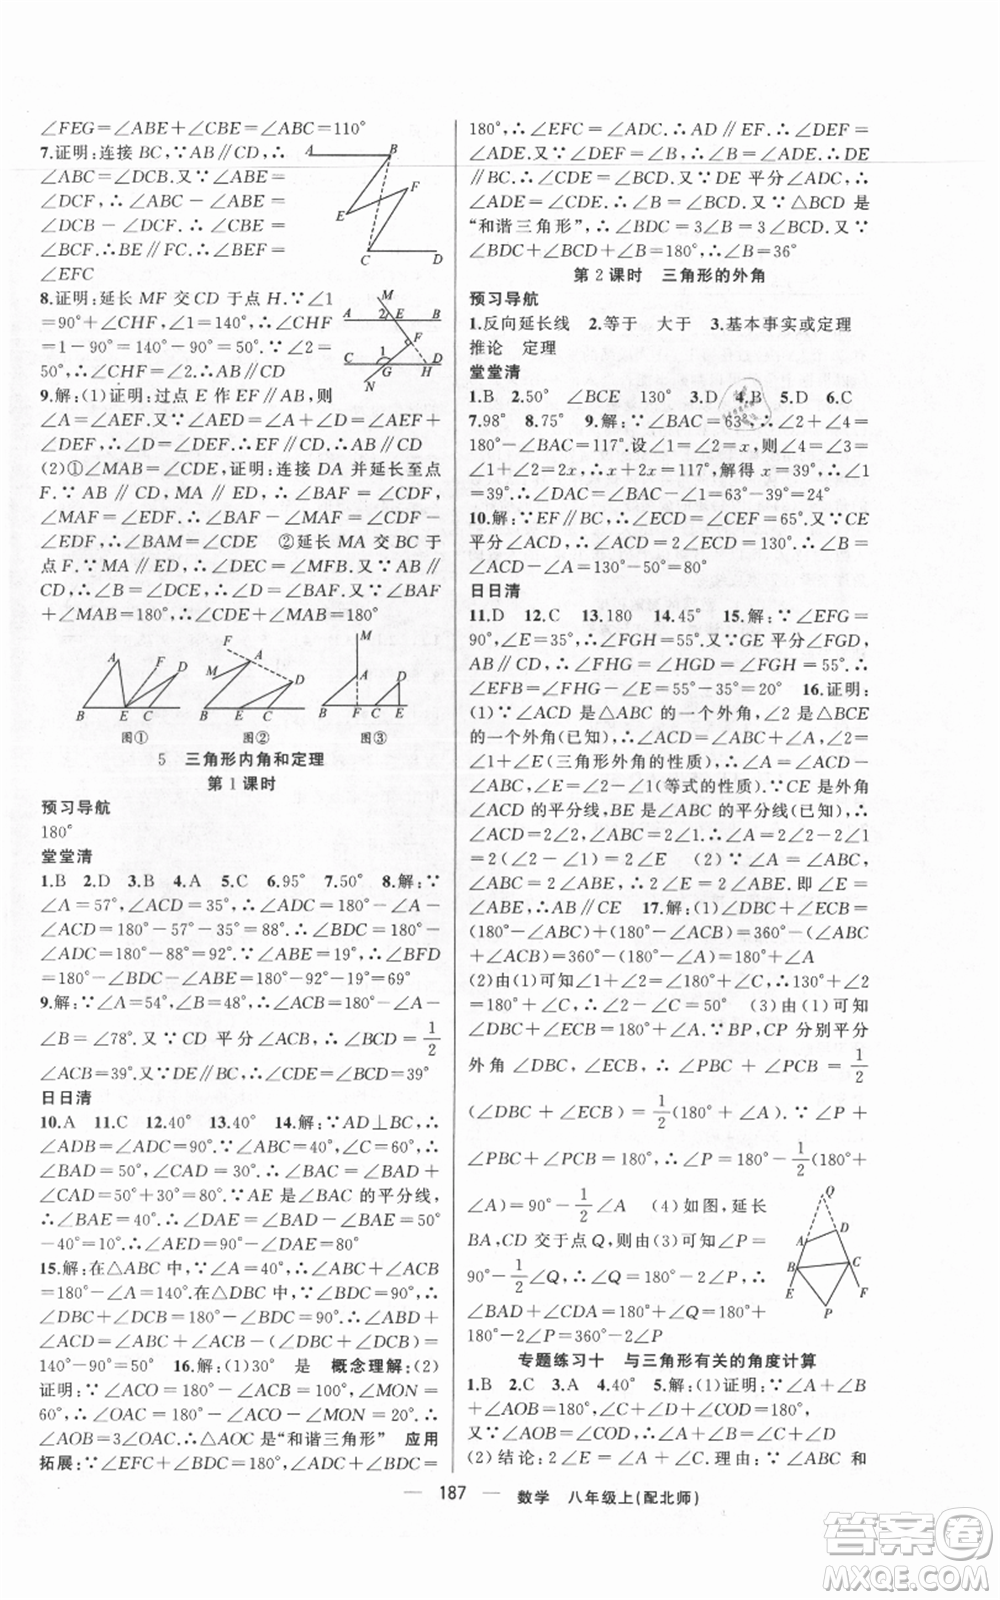 ∠FEG=∠ABE+∠CBE=∠ABC=110°
7.证明:连接 BC,∵AB∥CD,∴
∠ABC=∠DCB.又∵∠ABE=
∠DCF,∴∠ABC-∠ABE=
∠DCB-∠DCF.∴∠CBE=
∠BCF.∴BE∥CF.∴∠BEF=
∠EFC
A B F E C D
8.证明:延长 MF 交 CD 于点 H.∵∠1
=90°+∠CHF,∠1=140°,∴∠CHF=
∠1-90°=140°-90°=50°.∵∠2=
50°,∴∠CHF=∠2.∴AB∥CD
M A 2 E B F C 1 G H D N
9.解:(1)证明:过点 E 作 EF∥AB,则
∠A=∠AEF.∵∠AED=∠AEF+
∠DEF,∠AED=∠A+∠D,∴∠D=
∠DEF.∴EF∥CD.∴AB∥CD
(2)①∠MAB=∠CDE,证明:连接 DA 并延长至点
F.∵AB∥CD,MA∥ED,∴∠BAF=∠CDF,
∠MAF=∠EDF.∴∠BAF-∠MAF=∠CDF-
∠EDF,∴∠BAM=∠CDE ②延长 MA 交 BC 于
点 F.∵MA∥DE,∴∠DEC=∠MFB.又∵AB∥
CD,∴∠B=∠DCE,∴∠CDE=∠BAF.∵∠BAF
+∠MAB=180°,∴∠CDE+∠MAB=180°
A F D B E C
图①
F A M D B E C
图②
M A D B F C E
图③
5 三角形内角和定理
第 1 课时
预习导航
180°
堂堂清
1.B 2.D 3.B 4.A 5.C 6.95° 7.50° 8.解:∵
∠A=57°,∠ACD=35°,∴∠ADC=180°-∠A-
∠ACD=180°-57°-35°=88°.∴∠BDC=180°-
∠ADC=180°-88°=92°.∵∠ABE=19°,∴∠BFD
=180°-∠BDC-∠ABE=180°-92°-19°=69°
9.解:∵∠A=54°,∠B=48°,∴∠ACB=180°-∠A-
∠B=∠78°.又∵CD 平分∠ACB,∴∠BCD=1/2
∠ACB=39°.又∵DE∥BC,∴∠CDE=∠BCD=39°
日日清
10.A 11.C 12.40° 13.40° 14.解:∵AD⊥BC,∴
∠ADB=∠ADC=90°.∵∠ABC=40°,∠C=60°,∴
∠BAD=50°,∠CAD=30°.∴∠BAC=∠BAD+
∠CAD=50°+30°=80°.∵AE 是∠BAC 的平分线,
∴∠BAE=40°.∴∠DAE=∠BAD-∠BAE=50°
-40°=10°.∴∠AED=90°-∠DAE=90°-10°=80°
15.解:在△ABC 中,∵∠A=40°,∴∠ABC+∠ACB
=180°-∠A=140°.在△DBC 中,∵∠BDC=90°,
∴∠DBC+∠DCB=180°-∠BDC=90°.∴∠ABD+
∠ACD=∠ABC+∠ACB-(∠DBC+∠DCB)=
140°-90°=50° 16.解:(1)30° 是 概念理解:(2)
证明:∵∠ACO=180°-∠ACB=90°,∠MON=
60°,∴∠OAC=180°-∠ACO-∠MON=20°.∵
∠AOB=3∠OAC.∴△AOC是“和谐三角形” 应用
拓展:∵∠EFC+∠BDC=180°,∠ADC+∠BDC=
180°,∴∠EFC=∠ADC.∴AD∥EF.∴∠DEF=
∠ADE.又∵∠DEF=∠B,∴∠B=∠ADE.∴DE
∥BC.∴∠CDE=∠BCD.∵DE 平分∠ADC,∴
∠ADE=∠CDE.∴∠B=∠BCD.又∵△BCD 是
“和谐三角形”,∴∠BDC=3∠BCD=3∠B.∵
∠BDC+∠BCD+∠B=180°,∴∠B=36°
第 2 课时 三角形的外角
预习导航
1.反向延长线 2.等于 大于 3.基本事实或定理
推论 定理
堂堂清
1.B 2.50° ∠BCE 130° 3.D 4.B 5.D 6.C
7.98° 8.75° 9.解:∵∠BAC=63°,∴∠2+∠4=
180°-∠BAC=117°.设∠1=∠2=x,则∠4=∠3=
∠1+∠2=2x,∴x+2x=117°,解得 x=39°,∴∠1
=39°,∴∠DAC=∠BAC-∠1=63°-39°=24°
10.解:∵EF∥BC,∴∠BCE=∠CEF=65°.又∵CE
平分∠ACD,∴∠ACD=2∠BCE=130°.∴∠B=
∠ACD-∠A=130°-50°=80°
日日清
11.D 12.C 13.180 14.45° 15.解:∵∠EFG=
90°,∠E=35°,∴∠FGH=55°.又∵GE 平分∠FGD,
AB∥CD,∴∠FHG=∠HGD=∠FGH=55°.∴
∠EFB=∠FHG-∠E=55°-35°=20° 16.证明:
(1)∵∠ACD 是△ABC 的一个外角,∠2 是△BCE
的一个外角(已知),∴∠ACD=∠ABC+∠A,∠2
=∠1+∠E(三角形外角的性质),∴∠A=∠ACD
-∠ABC,∠E=∠2-∠1(等式的性质).∵CE 是外角
∠ACD 的平分线,BE 是∠ABC 的平分线(已知),∴
∠ACD=2∠2,∠ABC=2∠1,∴∠A=2∠2-2∠1
=2(∠2-∠1)=2∠E (2)∵∠A=∠ABC,
∠A=2∠E,∠ABC=2∠ABE,∴2∠E=2∠ABE.即∠E=
∠ABE,∴AB∥CE 17.解:(1)∠DBC+∠ECB=
(180°-∠ABC)+(180°-∠ACB)=360°-(∠ABC+
∠ACB)=360°-(180°-∠A)=180°+∠A
(2)由(1)可知∠1+∠2=180°+∠C,∴130°+∠2=
180°+∠C,∴∠2-∠C=50° (3)由(1)可知
∠DBC+∠ECB=180°+∠A.∵BP,CP 分别平分
外角∠DBC,∠ECB,∴∠PBC+∠PCB=1/2
(∠DBC+∠ECB)=1/2(180°+∠A).∵∠P+
∠PBC+∠PCB=180°,∴∠P=180°-1/2(180°+
∠A)=90°-1/2∠A (4)如图,延长
BA,CD 交于点 Q,则由(3)可知∠P=
90°-1/2∠Q,∴∠Q=180°-2∠P.∴
∠BAD+∠CDA=180°+∠Q=180°+
180°-2∠P=360°-2∠P
Q A D B C E F P
专题练习十 与三角形有关的角度计算
1.B 2.C 3.A 4.105° 5.解:(1)证明:∵∠A+∠B
+∠AOB=180°,∠C+∠D+∠COD=180°,
又∵∠AOB=∠COD,∴∠A+∠B=∠C+∠D
(2)结论:2∠E=∠A+∠C,∵∠ABC 和
187 数学 八年级上(配北师)
答案圈
MXQE.COM